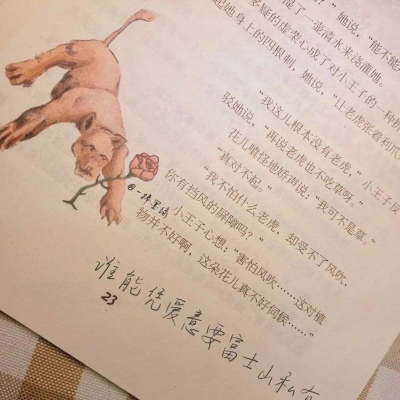 ？”她说，“能不能
了一壶清水来浇灌她。
多疑的虚荣心成了对小王子的一种折
起她身上的四根刺，她说，“让老虎张着利爪
“我这儿根本没有老虎，”小王子反
驳她说，“再说老虎也不吃草呀。”
花儿嗔怪地娇声说：“我可不是草。”
“真对不起。”
“我不怕什么老虎，却受不了风吹、
你有挡风的屏障吗？”
小王子心想：“害怕风吹……这对植
物并不好啊，这朵花儿真不好伺候……”
谁能凭爱意要富士山私有
23